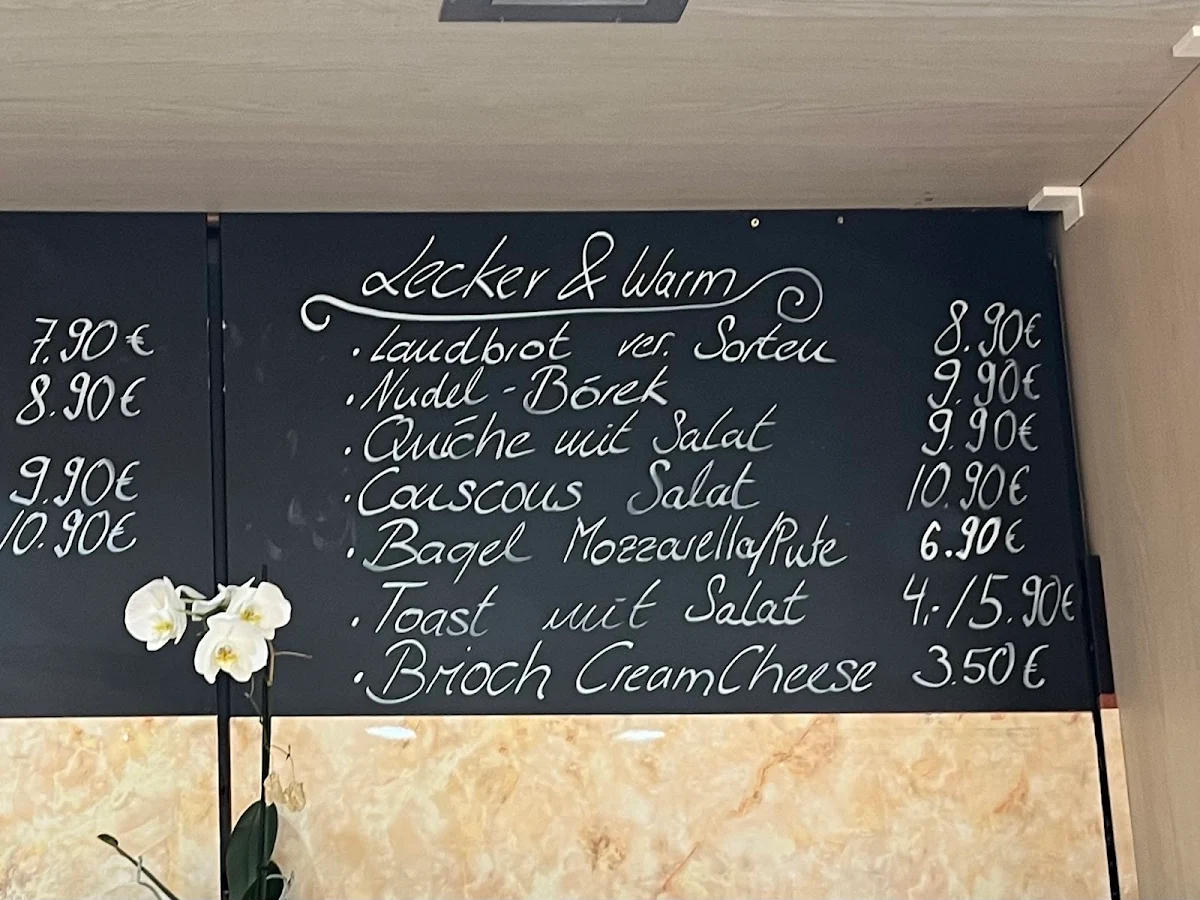 7.90€
8.90€
9.90€
10.90€
Lecker & Warm
· Landbrot ver. Sorten 8.90€
· Nudel - Börek 9.90€
· Quiche mit Salat 9.90€
· Couscous Salat 10.90€
· Bagel Mozzarella/Pute 6.90€
· Toast mit Salat 4.-/5.90€
· Brioch CreamCheese 3.50€